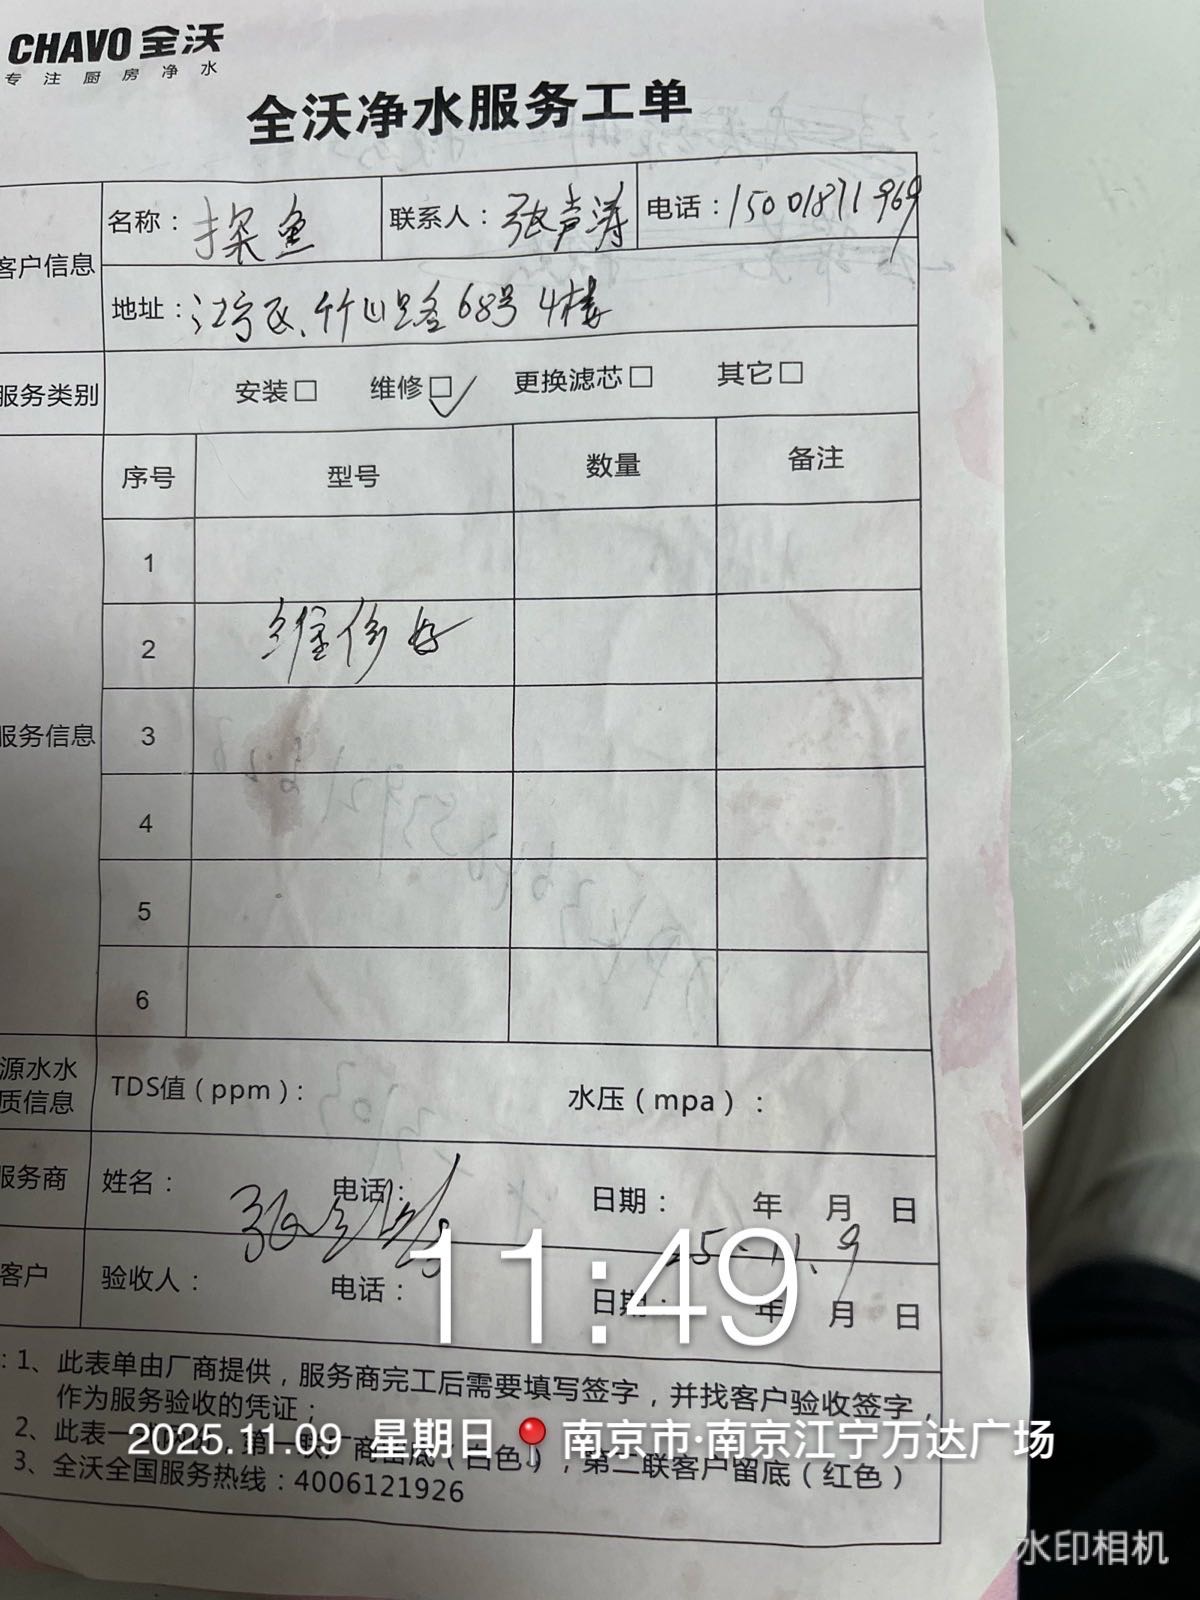 CHAVO 全沃
专注厨房净水
全沃净水服务工单
客户信息
名称：探鱼 联系人：张声涛 电话：15001871969
地址：江宁区、竹山路68号4楼
服务类别 安装□ 维修□✓ 更换滤芯□ 其它□
服务信息
序号 型号 数量 备注
1
2 维修好
3
4
5
6
源水水质信息 TDS值（ppm）： 水压（mpa）：
服务商 姓名： 电话： 日期： 年 月 日
25.11.9
客户 验收人： 电话： 日期： 年 月 日
11:49
：1、此表单由厂商提供，服务商完工后需要填写签字，并找客户验收签字，
作为服务验收的凭证；
2、此表一 第一联厂商留底（白色），第二联客户留底（红色）
3、全沃全国服务热线：4006121926
2025.11.09 星期日 南京市·南京江宁万达广场
水印相机